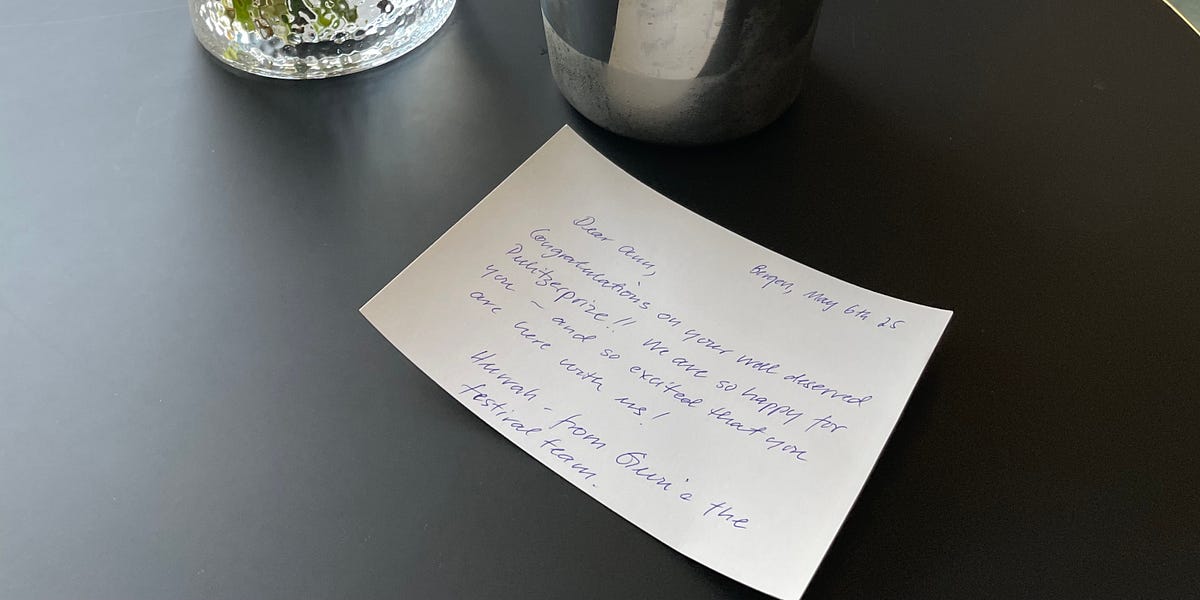 Bergen, May 6th 25
Dear Ann,
Congratulations on your well deserved
Pulitzerprize!! We are so happy for
you - and so excited that you
are here with us!
Hurrah - from Guri & the
festival team.